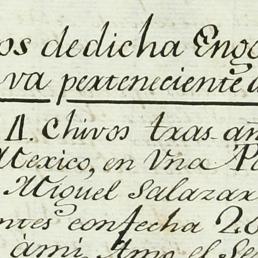 os de dicha Eng
va perteneciente a
A. Chivos tras añ
Mexico, en Vna P
Miguel Salazar
ntes con fecha 26
ami Amo el Se